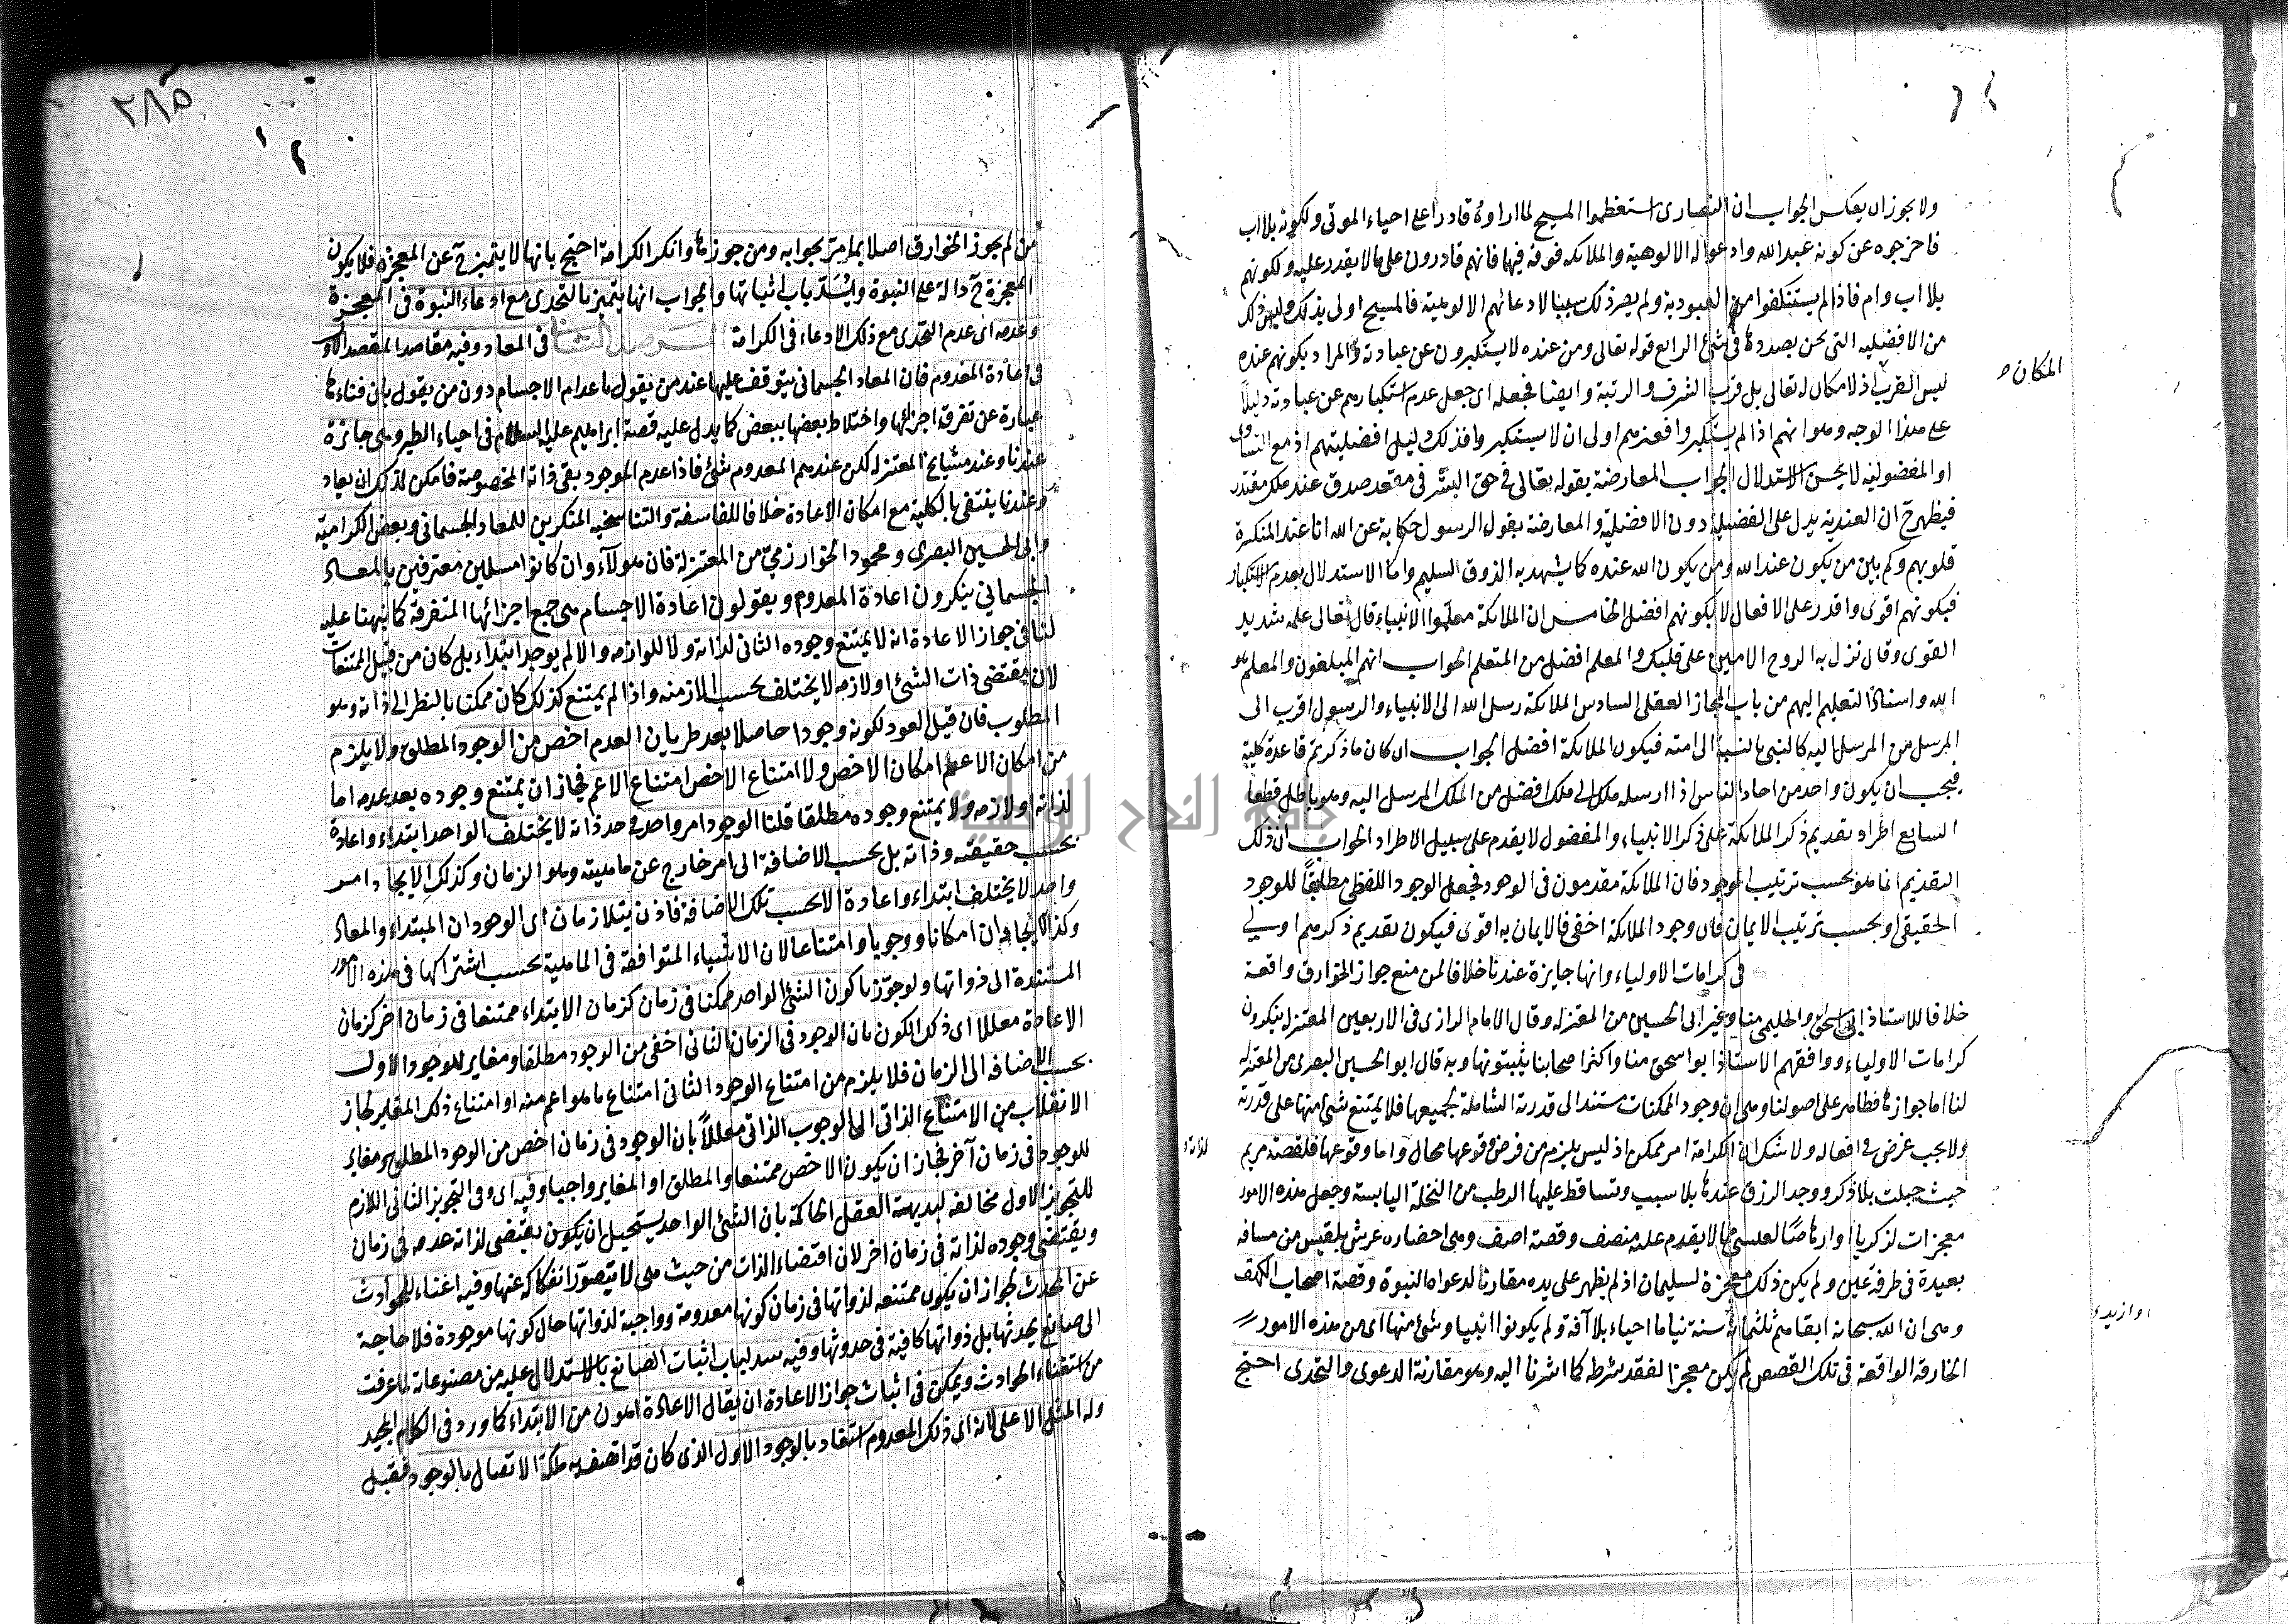 ولا يجوز ان يعكس الجواب ان النصارى استعظموا المسيح لما راوه قادرا على احياء الموتى ولكونه بلا اب
فاخرجوه عن كونه عبد الله وادعوا له الالوهية والملائكة فوقه فيها فانهم قادرون على ما لا يقدر عليه ولكونهم
بلا اب وام فاذا لم يستنكفوا من العبودية ولم يصر ذلك سببا لادعائهم الالوهية فالمسيح اولى بذلك وليس ذلك
من الافضلية التي نحن بصددها في شئ الرابع قوله تعالى ومن عنده لا يستكبرون عن عبادته والمراد بكونهم عنده
ليس القرب اذ لا مكان له تعالى بل قرب الشرف والرتبة وايضا فجعله اى جعل عدم استكبارهم عن عبادته دليلا
المكان
على هذا الوجه وهو انهم اذا لم يستكبروا فغيرهم اولى ان لا يستكبروا فذلك دليل افضليتهم اذ مع التساوى
او المفضولية لا يحسن الاستدلال الجواب المعارضة بقوله تعالى في حق البشر في مقعد صدق عند مليك مقتدر
فيظهر ح ان العندية يدل على الفضيلة دون الافضلية والمعارضة بقول الرسول حكاية عن الله انا عند المنكسرة
قلوبهم وكم بين من يكون عند الله ومن يكون الله عنده كما يشهد به الذوق السليم واما الاستدلال بعدم الاستكبار
فبكونهم اقوى واقدر على الافعال لا بكونهم افضل الخامس ان الملائكة معلموا الانبياء قال تعالى علمه شديد
القوى وقال نزل به الروح الامين على قلبك والمعلم افضل من المتعلم الجواب انهم المبلغون والمعلم هو
الله واسناد التعليم اليهم من باب المجاز العقلى السادس الملائكة رسل الله الى الانبياء والرسول اقرب الى
المرسل من المرسل اليه كالنبي بالنسبة الى امته فيكون الملائكة افضل الجواب ان كان ما ذكرتم قاعدة كلية
فيجب ان يكون واحد من احاد الناس اذا ارسله ملك الى ملك افضل من الملك المرسل اليه وهو باطل قطعا
السابع اطراد تقديم ذكر الملائكة على ذكر الانبياء والمفضول لا يقدم على سبيل الاطراد الجواب ان ذلك
التقديم انما هو بحسب ترتيب الوجود فان الملائكة مقدمون في الوجود فجعل الوجود اللفظى مطلبقا للوجود
الحقيقى او بحسب ترتيب الايمان فان وجود الملائكة اخفى فالايمان به اقوى فيكون تقديم ذكرهم اولى
في كرامات الاولياء وانها جايزة عندنا خلافا لمن منع جواز الخوارق واقعة
خلافا للاستاذ ابى اسحق والحليمى منا وغير ابى الحسين من المعتزلة وقال الامام الرازى في الاربعين المعتزلة ينكرون
كرامات الاولياء ووافقهم الاستاذ ابو اسحق منا واكثر اصحابنا يثبتونها وبه قال ابو الحسين البصرى من المعتزلة
لنا اما جوازها فظاهر على اصولنا وهى ان وجود الممكنات مستند الى قدرته الشاملة لجميعها فلا يمتنع شئ منها على قدرته
ولا يجب غرض في افعاله ولا شك ان الكرامة امر ممكن اذ ليس يلزم من فرض وقوعها محال واما وقوعها فلقصة مريم
لذاته
حيث حبلت بلا ذكر ووجد الرزق عندها بلا سبب وتساقط عليها الرطب من النخلة اليابسة وجعل هذه الامور
معجزات لزكريا او ارهاصا لعيسى مما لا يقدم عليه منصف وقصة اصف وهى احضاره عرش بلقيس من مسافة
بعيدة في طرفة عين ولم يكن ذلك معجزة لسليمان اذ لم يظهر على يده مقارنا لدعواه النبوة وقصة اصحاب الكهف
وهى ان الله سبحانه ابقاهم ثلثمائة سنة نياما احياء بلا آفة ولم يكونوا انبيا وشئ منها اى من هذه الامور
او ازيد
الخارقة الواقعة في تلك القصص لم يكن معجزا لفقد شرطه كما اشرنا اليه وهو مقارنة الدعوى والتحدى احتج
٢٨٥
من لم يجوز الخوارق اصلا بما مر بجوابه ومن جوزها وانكر الكرامة احتج بانها لا يتميز ح عن المعجزة فلا يكون
المعجزة ح دالة على النبوة وينسد باب اثباتها والجواب انها يتميز بالتحدى مع ادعاء النبوة في المعجزة
وعدمه اى عدم التحدى مع ذلك الادعاء في الكرامة المرصد الثانى في المعاد وفيه مقاصد المقصد الاول
في اعادة المعدوم فان المعاد الجسمانى يتوقف عليها عند من يقول باعدام الاجسام دون من يقول بان فناءها
عبارة عن تفرق اجزائها واختلاط بعضها ببعض كما يدل عليه قصة ابراهيم عليه السلام في احياء الطير وهى جائزة
عندنا وعند مشايخ المعتزلة لكن عندهم المعدوم شئ فاذا عدم الموجود بقى ذاته المخصوصة فامكن لذلك ان يعاد
وعندنا ينتفى بالكلية مع امكان الاعادة خلافا للفلاسفة والتناسخية المنكرين للمعاد الجسمانى وبعض الكرامية
وابى الحسين البصرى ومحمود الخوارزمى من المعتزلة فان هولآء وان كانوا مسلمين معترفين بالمعاد
الجسمانى ينكرون اعادة المعدوم ويقولون اعادة الاجسام هى جمع اجزائها المتفرقة كما نبهنا عليه
لنا في جواز الاعادة انه لا يمتنع وجوده الثانى لذاته ولا للوازمه والا لم يوجد ابتداء بل كان من قبيل الممتنعات
لان مقتضى ذات الشئ او لازمه لا يختلف بحسب الازمنة واذا لم يمتنع كذلك كان ممكنا بالنظر الى ذاته وهو
المطلوب فان قيل العود لكونه وجودا حاصلا بعد طريان العدم اخص من الوجود المطلق ولا يلزم
من امكان الاعم امكان الاخص ولا امتناع الاخص امتناع الاعم فجاز ان يمتنع وجوده بعد عدمه اما
لذاته او لازمه ولا يمتنع وجوده مطلقا قلنا الوجود امر واحد في حد ذاته لا يختلف الواحد ابتداء واعادة
بحسب حقيقته وذاته بل بحسب الاضافة الى امر خارج عن ماهيته وهو الزمان وكذلك الايجاد امر
واحد لا يختلف ابتداء واعادة الا بحسب تلك الاضافة فاذن يتلازمان اى الوجودان المبتداء والمعاد
وكذا الايجادان امكانا ووجوبا وامتناعا لان الاشياء المتوافقة في الماهية يجب اشتراكها في هذه الامور
المستندة الى ذواتها ولو جوزنا كون الشئ الواحد ممكنا في زمان كزمان الابتداء ممتنعا في زمان اخر كزمان
الاعادة معللا اى ذلك الكون بان الوجود في الزمان الثانى اخص من الوجود مطلقا ومغاير للوجود الاول
بحسب الاضافة الى الزمان فلا يلزم من امتناع الوجود الثانى امتناع ما هو اعم منه او امتناع ذلك المغاير لجاز
الانقلاب من الامتناع الذاتى الى الوجوب الذاتى معللا بان الوجود في زمان اخص من الوجود المطلق ومغاير
للوجود في زمان آخر فجاز ان يكون الاخص ممتنعا والمطلق او المغاير واجبا وفيه اى وفى التجويز الثانى اللازم
للتجويز الاول مخالفة لبديهة العقل الحاكمة بان الشئ الواحد يستحيل ان يكون يقتضى لذاته عدمه في زمان
ويقتضى وجوده لذاته في زمان اخر لان اقتضاء الذات من حيث هى لا يتصور انفكاكه عنها وفيه اغناء للحوادث
عن المحدث لجواز ان يكون ممتنعة لذواتها في زمان كونها معدومة وواجبة لذواتها حال كونها موجودة فلا حاجة
الى صانع يحدثها بل ذواتها كافية في حدوثها وفيه سد لباب اثبات الصانع بالاستدلال عليه من مصنوعاته لما عرفت
من استغناء الحوادث ويمكن في اثبات جواز الاعادة ان يقال الاعادة اهون من الابتداء كما ورد في الكلام المجيد
وله المثل الاعلى لانه اى ذلك المعدوم استفاد بالوجود الاول الذى كان قد اتصف به ملكة الاتصال بالوجود فيقبل
جامعة النجاح الوطنية